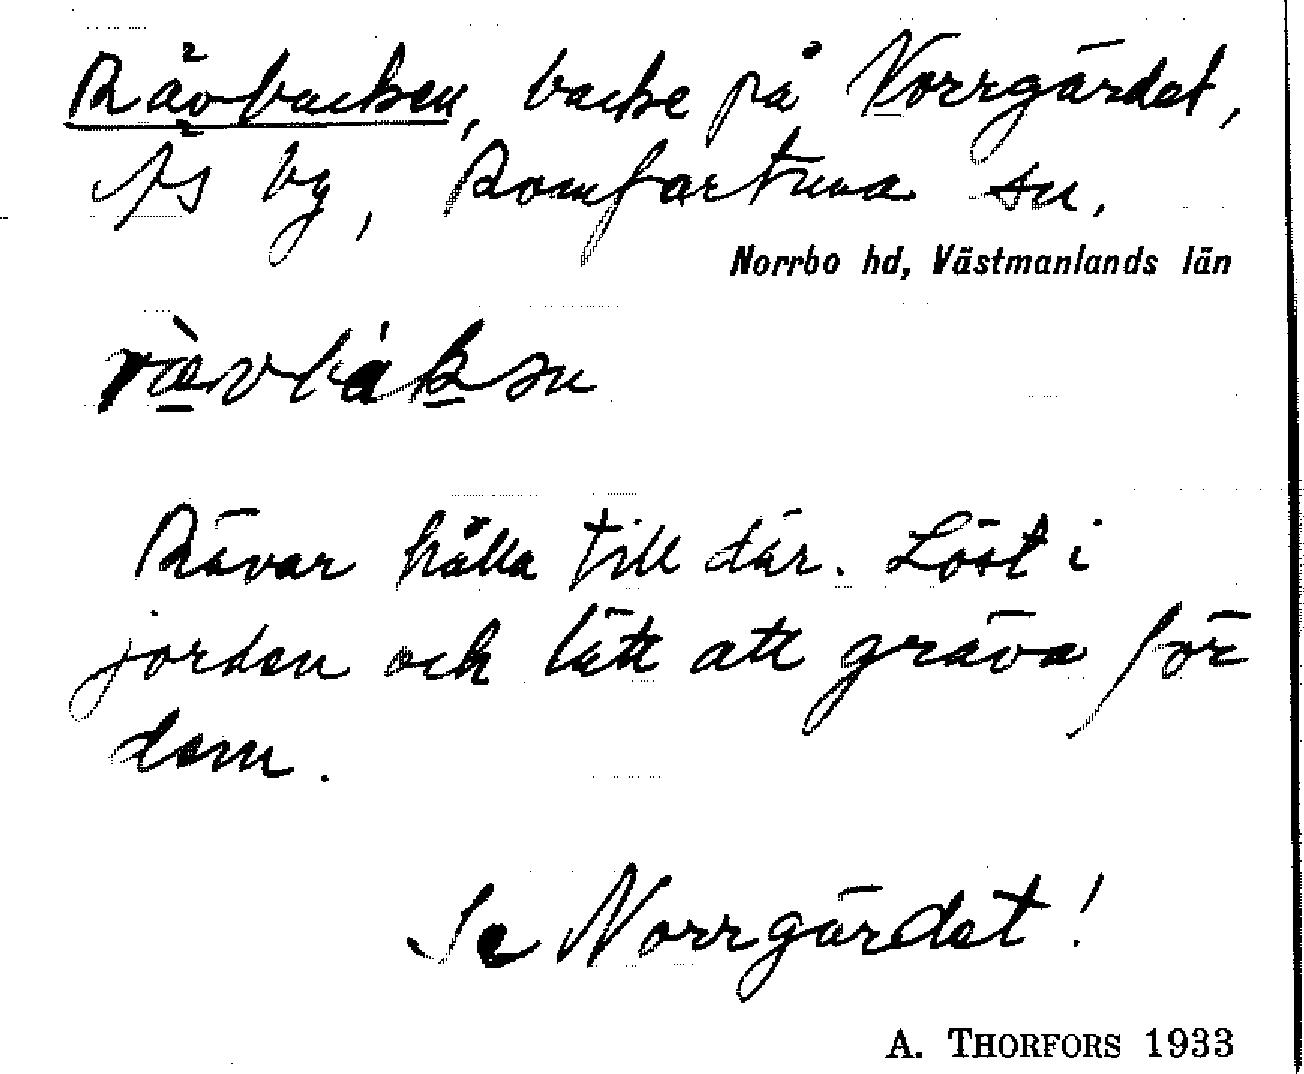 Rävbacken, backe på Norrgärdet,
Ås by, Romfartuna sn.
Norrbo hd, Västmanlands län
Rävar hålla till där. Löst i
jorden och lätt att gräva för
dem.
Se Norrgärdet!
A. THORFORS 1933